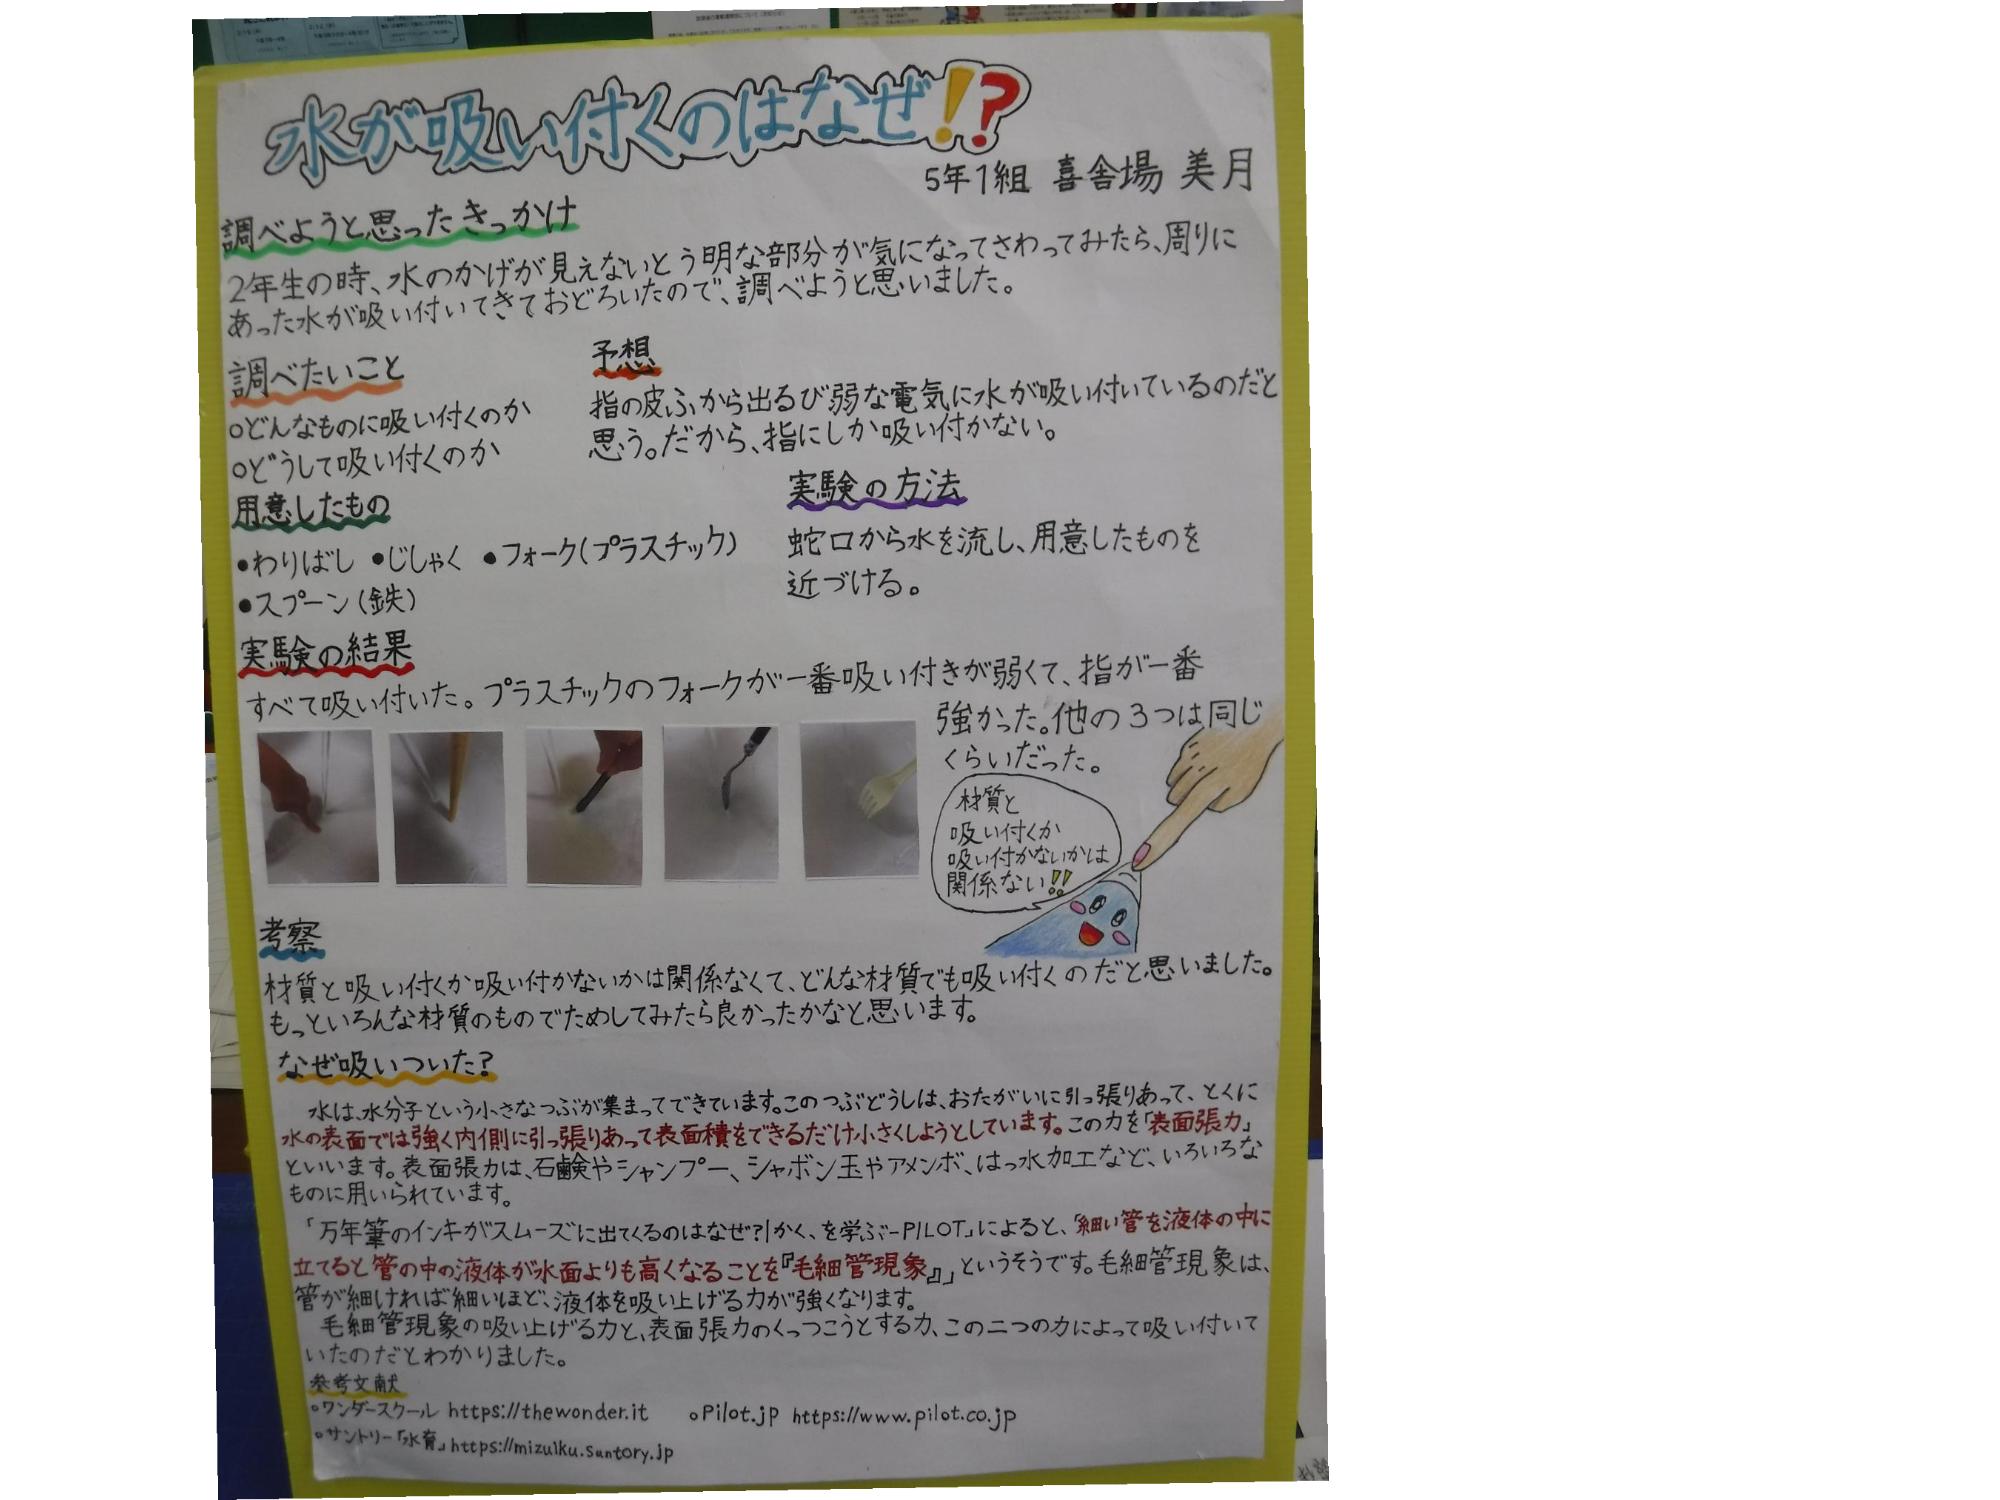 水が吸い付くのはなぜ!?
5年1組 喜舎場 美月
調べようと思ったきっかけ
2年生の時、水のかげが見えないとう明な部分が気になってさわってみたら、周りに
あった水が吸い付いてきておどろいたので、調べようと思いました。
調べたいこと
○どんなものに吸い付くのか
○どうして吸い付くのか
予想
指の皮ふから出るび弱な電気に水が吸い付いているのだと
思う。だから、指にしか吸い付かない。
用意したもの
●わりばし ●じしゃく ●フォーク(プラスチック)
●スプーン(鉄)
実験の方法
蛇口から水を流し、用意したものを
近づける。
実験の結果
すべて吸い付いた。プラスチックのフォークが一番吸い付きが弱くて、指が一番
強かった。他の3つは同じ
くらいだった。
材質と
吸い付くか
吸い付かないかは
関係ない!!
考察
材質と吸い付くか吸い付かないかは関係なくて、どんな材質でも吸い付くのだと思いました。
もっといろんな材質のものでためしてみたら良かったかなと思います。
なぜ吸いついた?
水は、水分子という小さなつぶが集まってできています。このつぶどうしは、おたがいに引っ張りあって、とくに
水の表面では強く内側に引っ張りあって表面積をできるだけ小さくしようとしています。この力を「表面張力」
といいます。表面張力は、石鹸やシャンプー、シャボン玉やアメンボ、はっ水加工など、いろいろな
ものに用いられています。
「万年筆のインキがスムーズに出てくるのはなぜ?|かく、を学ぶ-PILOT」によると、「細い管を液体の中に
立てると管の中の液体が水面よりも高くなることを『毛細管現象』」というそうです。毛細管現象は、
管が細ければ細いほど、液体を吸い上げる力が強くなります。
毛細管現象の吸い上げる力と、表面張力のくっつこうとする力、この二つの力によって吸い付いて
いたのだとわかりました。
参考文献
○ワンダースクール https://thewonder.it ○Pilot.jp https://www.pilot.co.jp
○サントリー「水育」https://mizuiku.suntory.jp